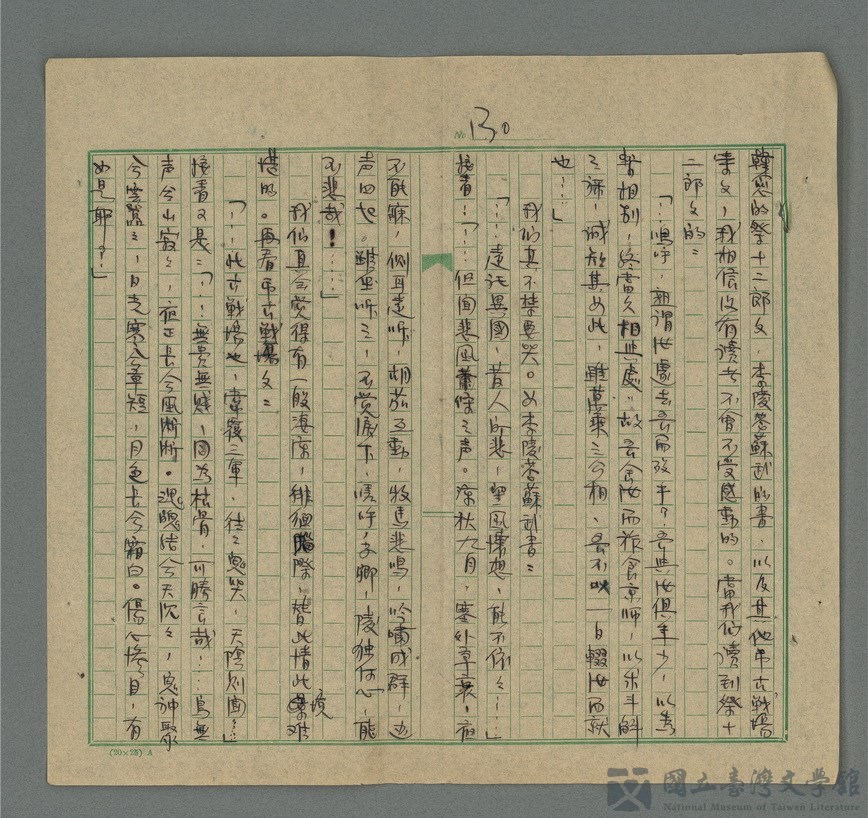 No 130
韓愈的祭十二郎文、李陵答蘇武的書、以及其他弔古戰場
文,我相信沒有讀者不會不受感動的。當我們讀到祭十
二郎文的:
「…嗚呼,孰謂汝遽去吾而歿乎?吾與汝俱年少,以為
暫相別,終當久相與處;故吾食汝而旅食京師,以求斗斛
之祿,誠知其如此,雖萬乘之公相、吾不以一日輟汝而就
也……」
我們真不禁要哭。如李陵答蘇武書:
「…遠託異國,昔人所悲,望風懷想,能不依々……」
接着:「…但聞悲風蕭條之声。涼秋九月,塞外草衰,夜
不能寐,側耳遠听,胡笳互動,牧馬悲鳴,吟嘯成群,边
声四起。晨坐听之,不覺淚下,嗟呼,子卿,陵独何心,能
不悲哉!……」
我們真会覚得有一般淒凉,徘徊腦際,替此情此境难
堪的。再看弔古戰場文:
「…此古戰場也,常覆三軍,往々鬼哭,天陰則聞…」
接着又是:「…無貴無賤,同為枯骨,可勝言哉,…鳥無
声兮山寂々,夜正長兮風淅淅。魂魄结兮天沉々,鬼神聚
兮雲冪々,日光寒兮草短,月色长兮霜白。傷心慘目,有
如是耶?…」
(20×25) A
國立臺灣文學館
National Museum of Taiwan Literature